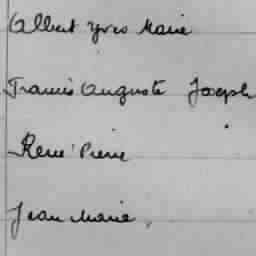 Albert Yves Marie
Francis Auguste Joseph
René Pierre
Jean Marie,